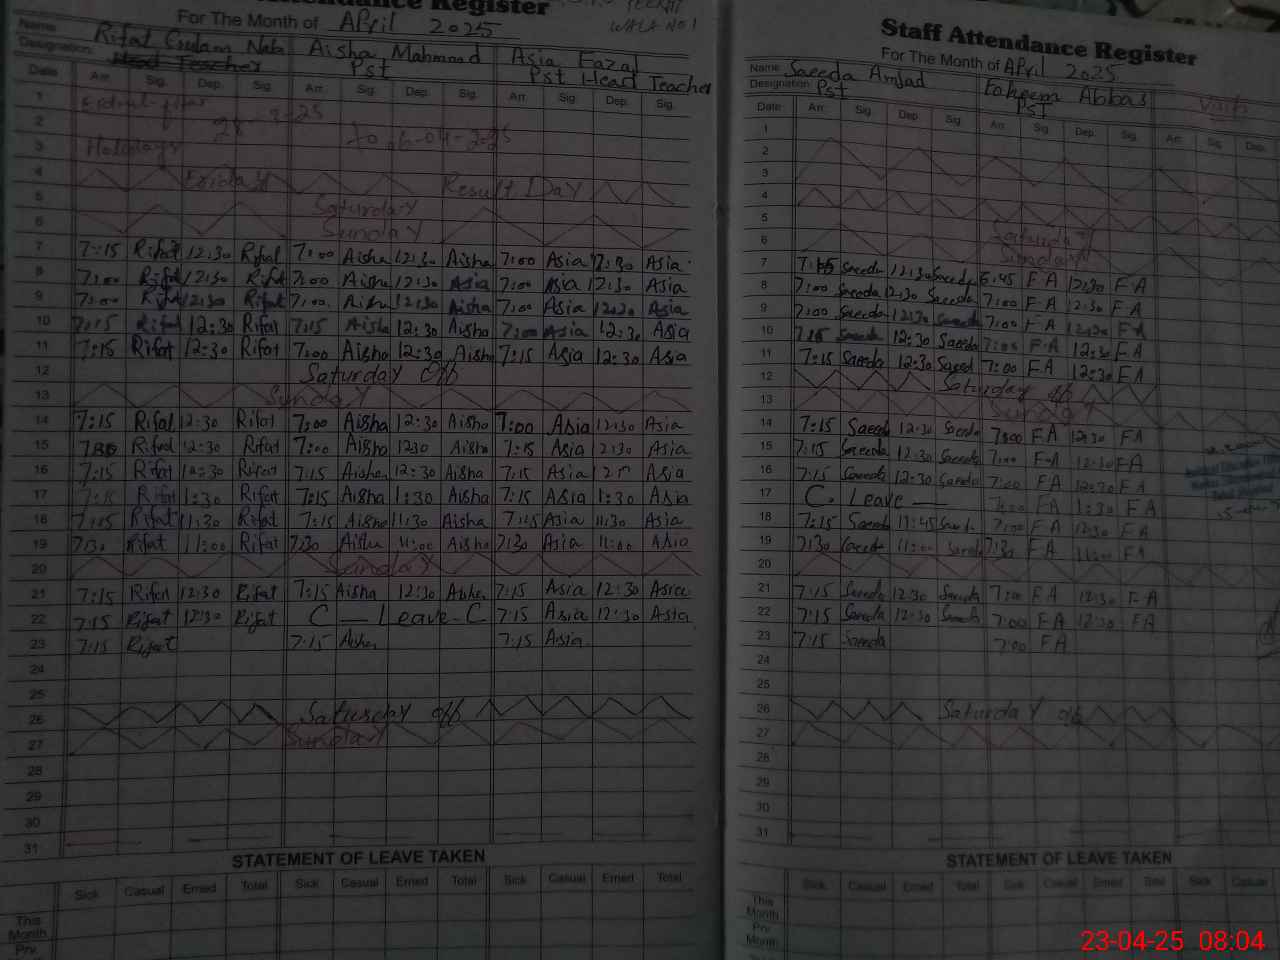 Attendance Register
For The Month of April 2025
WALA NO 1
Name: Rifat Gulam Nabi Aisha Mahmood Asia Fazal
Designation: Head Teacher Pst Pst Head Teacher
Date Arr. Sig. Dep. Sig. Arr. Sig. Dep. Sig. Arr. Sig. Dep. Sig.
1
2 28 - 3-25 to
3 Holidays
4 Friday Result Day
5 Saturday
6 Sunday
7 7:15 Rifat 12:30 Rifat 7:00 Aisha 12:30 Aisha 7:00 Asia 12:30 Asia
8 7:00 Rifat 12:30 Rifat 7:00 Aisha 12:30 Asia 7:00 Asia 12:30 Asia
9 7:00 Rifat 12:30 Rifat 7:00 Aisha 12:30 Aisha 7:00 Asia 12:30 Asia
10 7:15 Rifat 12:30 Rifat 7:15 Aisha 12:30 Aisha 7:00 Asia 12:30 Asia
11 7:15 Rifat 12:30 Rifat 7:00 Aisha 12:30 Aisha 7:15 Asia 12:30 Asia
12 Saturday off
13 Sunday
14 7:15 Rifat 12:30 Rifat 7:00 Aisha 12:30 Aisha 7:00 Asia 12:30 Asia
15 Rifat 12:30 Rifat 7:00 Aisha 1230 Aisha 7:15 Asia 12:30 Asia
16 7:15 Rifat 12:30 Rifat 7:15 Aisha 12:30 Aisha 7:15 Asia Asia
17 7:15 Rifat 1:30 Rifat 7:15 Aisha 1:30 Aisha 7:15 Asia 1:30 Asia
18 7:15 Rifat 11:30 Rifat 7:15 Aisha 11:30 Aisha 7:15 Asia 11:30 Asia
19 7:30 Rifat 11:00 Rifat 7:30 Aisha 11:00 Aisha 7:30 Asia 11:00 Asia
20 Sunday
21 7:15 Rifat 12:30 Rifat 7:15 Aisha 12:30 Aisha 7:15 Asia 12:30 Asia
22 7:15 Rifat 12:30 Rifat C — Leave - C 7:15 Asia 12:30 Asia
23 7:15 Rifat 7:15 Aisha 7:15 Asia
24
25
26 Saturday off
27 Sunday
28
29
30
31
STATEMENT OF LEAVE TAKEN
Sick Casual Erned Total Sick Casual Erned Total Sick Casual Erned Total
This Month
Prv
Staff Attendance Register
For The Month of April 2025
Name: Saeeda Amjad Faheem Abbas Visits
Designation: Pst PST
Date Arr. Sig. Dep. Sig. Arr. Sig. Dep. Sig. Arr. Sig. Dep.
1
2
3
4
5 Saturday
6 Sunday
7 7:15 Saeeda 12:30 Saeeda 6:45 F-A 12:30 F-A
8 7:00 Saeeda 12:30 Saeeda 7:00 F-A 12:30 F-A
9 7:00 Saeeda 12:30 Saeeda 7:00 F-A 12:30 F-A
10 7:15 Saeeda 12:30 Saeeda 7:00 F-A 12:30 F-A
11 7:15 Saeeda 12:30 Saeed 7:00 F A 12:30 F A
12 Saturday off
13 Sunday
14 7:15 Saeeda 12:30 Saeeda 7:00 F A 12:30 F A
15 7:15 Saeeda 12:30 Saeeda 7:00 F-A 12:30 F A
16 7:15 Saeeda 12:30 Saeeda 7:00 F A 12:30 F A
17 C. Leave — 7:00 F A 1:30 F A
18 7:15 Saeeda 11:45 7:00 F A 12:30 F A
19 7:30 Saeeda 11:00 Saeeda 7:30 F A 11:00 F A
20
21 7:15 Saeeda 12:30 Saeeda 7:00 F A 12:30 F-A
22 7:15 Saeeda 12:30 Saeeda 7:00 F A 12:30 F A
23 7:15 Saeeda 7:00 F A
24
25
26 Saturday off
27
28
29
30
31
STATEMENT OF LEAVE TAKEN
Sick Casual Erned Total Sick Casual Erned Total Sick Casual
This Month
Prv Month
23-04-25 08:04